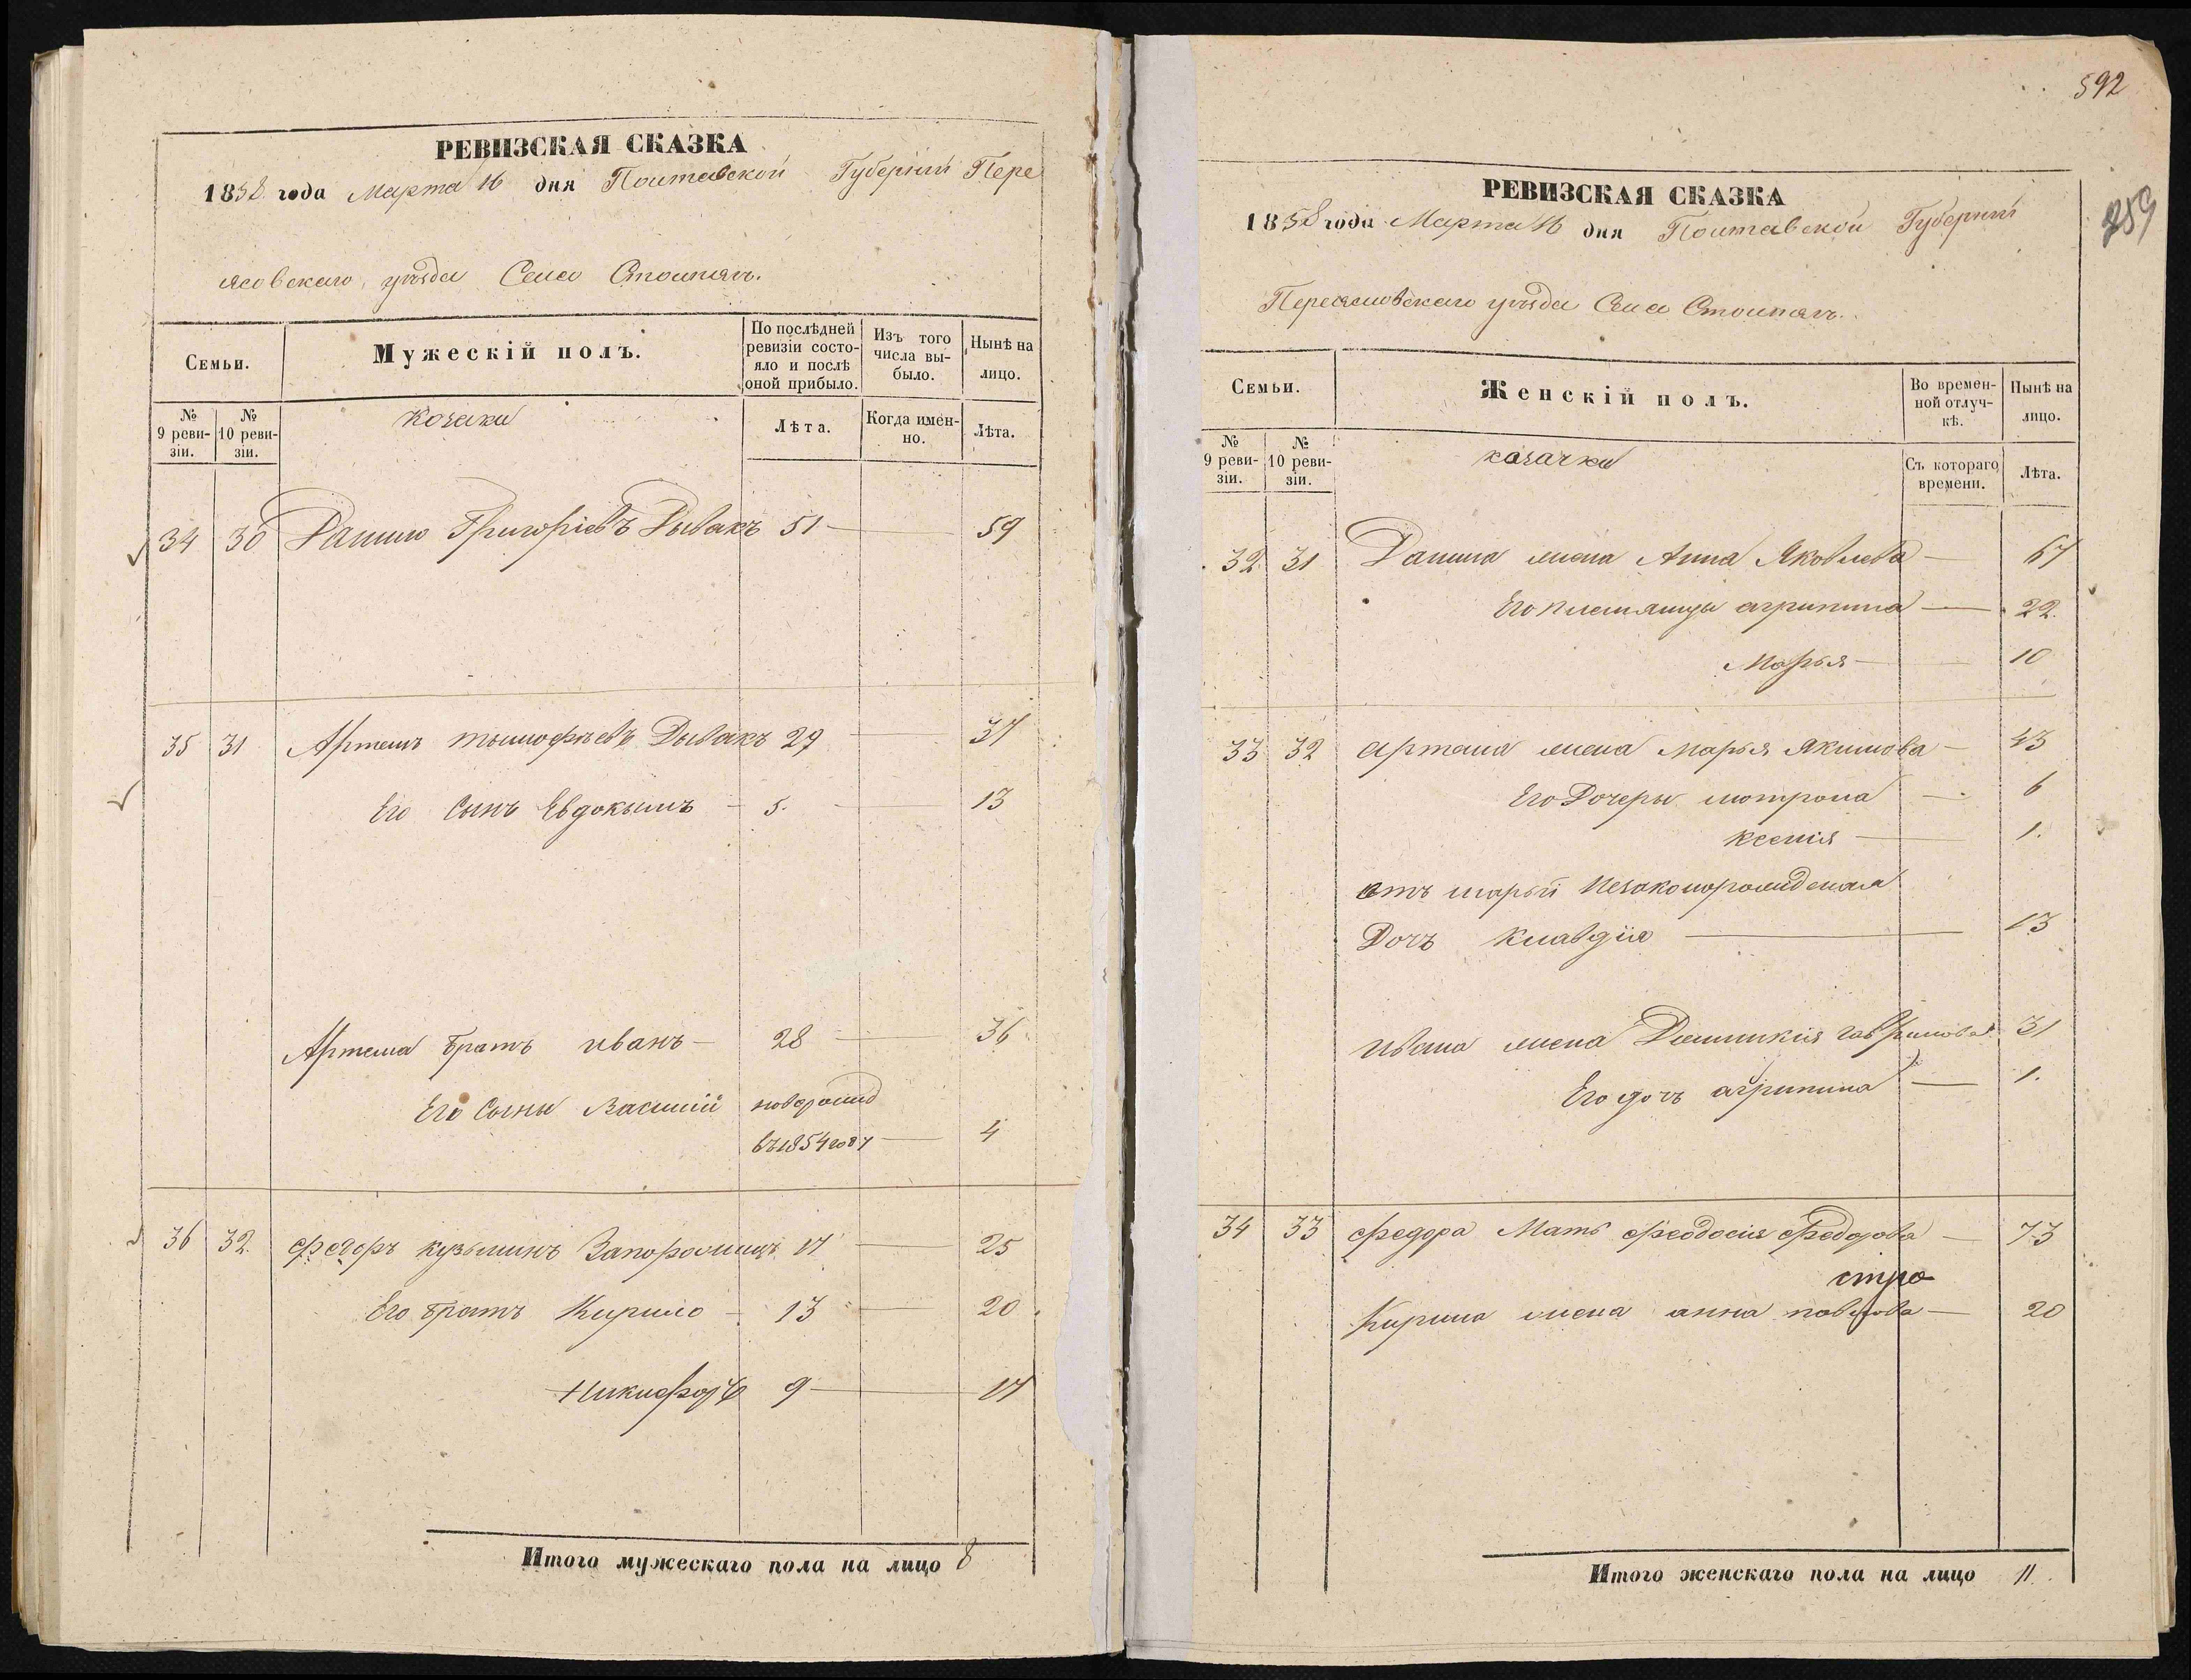 РЕВИЗСКАЯ СКАЗКА
1858 года Марта 16 дня Полтавской Губерніи Пере
яславскаго уѣзда Села Столпягъ.
Семьи.
Мужескій полъ.
По послѣдней ревизіи состояло и послѣ оной прибыло.
Изъ того числа выбыло.
Нынѣ на лицо.
№ 9 ревизіи.
№ 10 ревизіи.
Козаки
Лѣта.
Когда именно.
Лѣта.
34 30 Данило Григоріевъ Дывакъ 51 — 59
35 31 Артемъ тымофѣевъ Дывакъ 29 — 37
Его Сынъ Евдокымъ — 5. — 13
Артема братъ иванъ — 28 — 36
Его Сыны Василій новорожд
въ 1854 году — 4
36 32. Федоръ кузьминъ Запорожецъ 17 — 25
Его братъ Кирило — 13 — 20
Никифоръ 9 — 17
Итого мужескаго пола на лицо 8
592
259
РЕВИЗСКАЯ СКАЗКА
1858 года Марта 16 дня Полтавской Губерніи
Переяславскаго уѣзда Села Столпягъ.
Семьи.
Женскій полъ.
Во временной отлучкѣ.
Нынѣ на лицо.
№ 9 ревизіи.
№ 10 ревизіи.
козачки
Съ котораго времени.
Лѣта.
32 31 Данила жена Анна Яковлева — 67
Его племянцы агрипина — 22.
Марья — 10
33 32 артема жена Марья Якимова — 43
Его Дочеры мотрона — 6
ксенія — 1.
отъ марьи незаконорожденая
Дочъ клавдія — 13
ивана жена Домникія гаврилова 31
Его дочъ агрипина — 1.
34 33 федора Мать феодосія федорова — 73
Кирила жена анна павлова — 20
Итого женскаго пола на лицо 11.